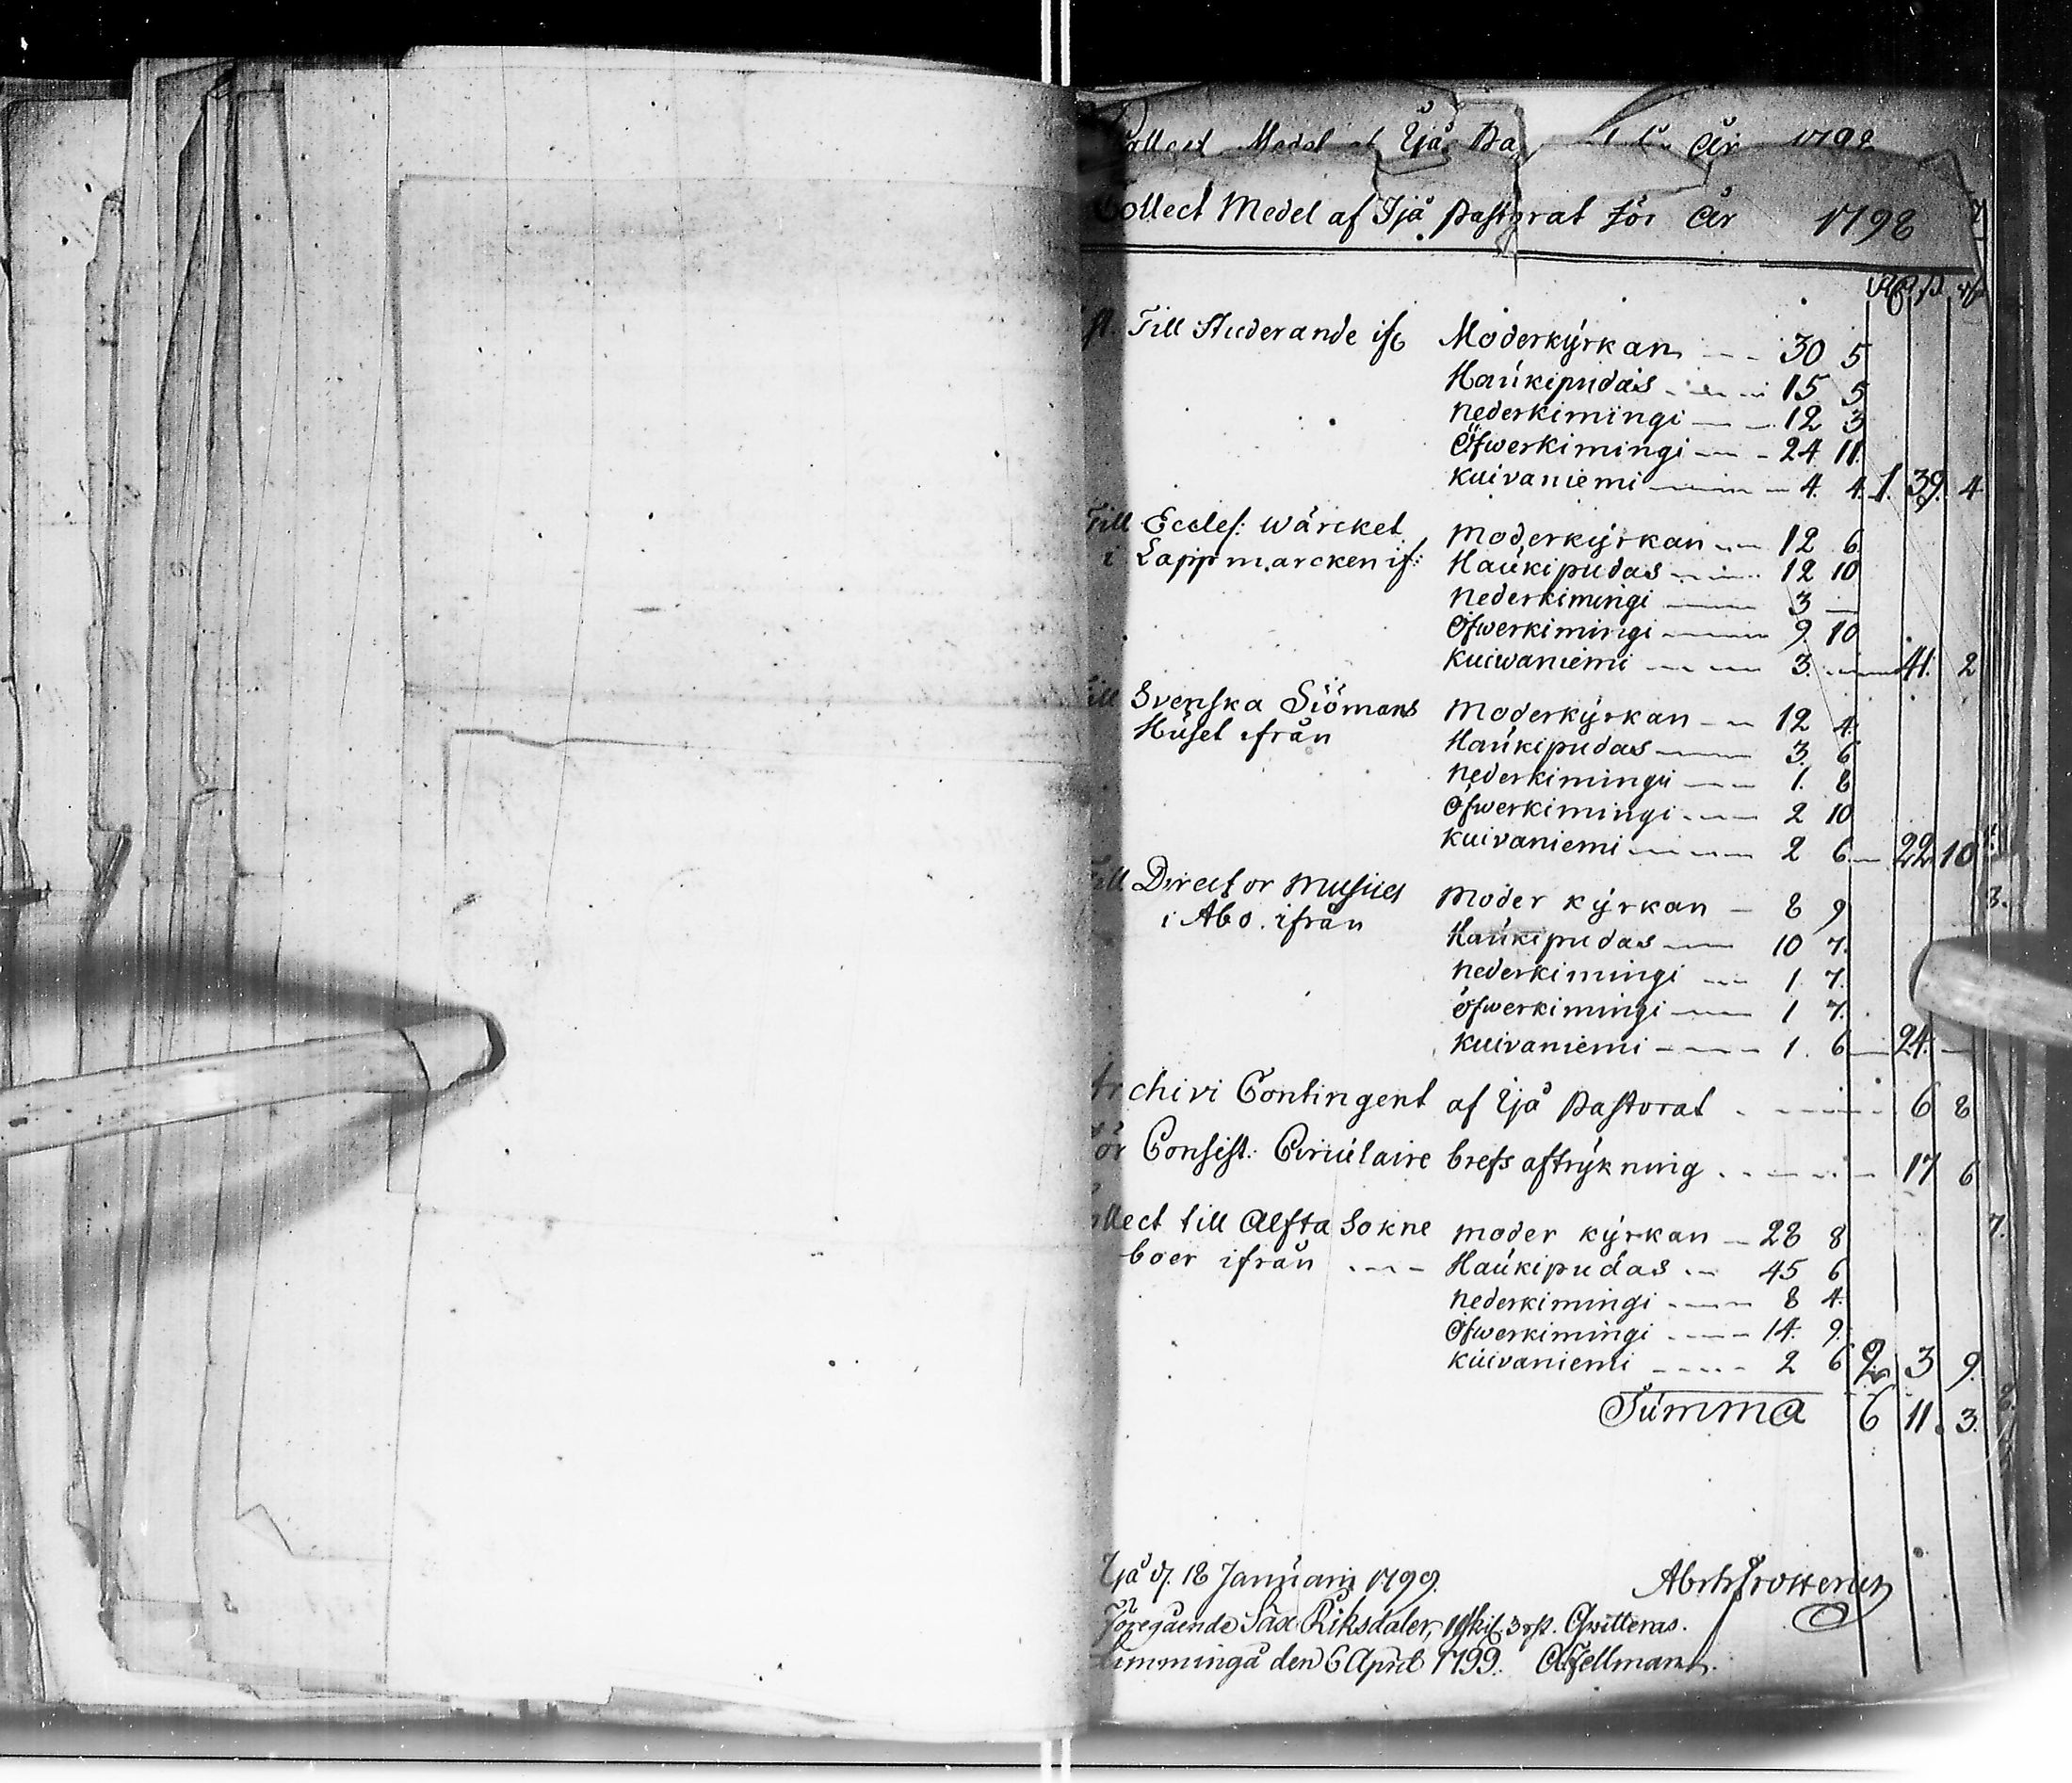 Medel Ijå År 1798
Collect Medel af Ijå Pastorat för År 1798
Till Studerande ifr Moderkyrkan 30 5
Haukipudas 15 5
Nederkimingi 12 3
Öfwerkimingi 24 11
Kuivaniemi 4. 4. 1. 39. 4
Till Eccles: wärcket Moderkyrkan 12 6
i Lappmarcken if: Haukipudas 12 10
Nederkimingi 3 —
Öfwerkimingi 9. 10
Kuiwaniemi 3. 41. 2
Till Svenska Siömans Moderkyrkan 12 4.
Huset ifrån Haukipudas 3. 6
Nederkimingi 1. 8
Öfwerkimingi 2 10
Kuivaniemi 2 6 22 10
Till Director Musices Moder kyrkan 8 9
i Åbo. ifrån Haukipudas 10 7.
Nederkimingi 1 7.
Öfwerkimingi 1 7.
Kuivaniemi 1. 6 24. —
Archivi Contingent af Ijå Pastorat 6 8
För Consist: Circulaire brefs aftrykning 17 6
Collect till Alfta Sokne moder kyrkan 28 8
boer ifrån Haukipudas 45 6
Nederkimingi 8 4.
Öfwerkimingi 14. 9.
Kuivaniemi 2 6 2 3 9.
Summa 6 11. 3.
Ijå d. 18 Januarii 1799.
Föregående Sex Riksdaler, 11 skil. 3 rst. Qwitteras.
Limminga den 6 April 1799. Fellman.